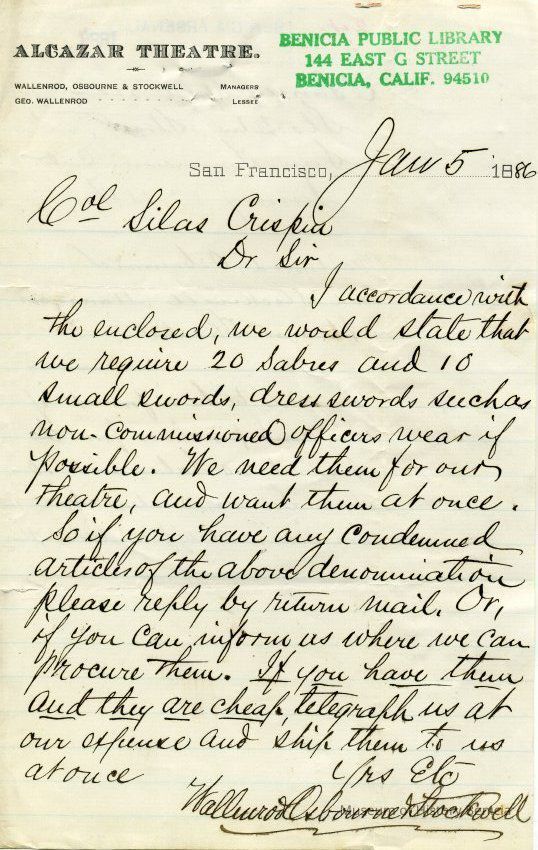 ALCAZAR THEATRE.
BENICIA PUBLIC LIBRARY
144 EAST G STREET
BENICIA, CALIF. 94510
WALLENROD, OSBOURNE & STOCKWELL MANAGERS
GEO. WALLENROD LESSEE
San Francisco, Jan 5 1886
Col Silas Crispin
Dr Sir
I accordance with
the enclosed, we would state that
we require 20 Sabres and 10
small swords, dress swords such as
non-commissioned officers wear if
possible. We need them for our
theatre, and want them at once.
So if you have any condemned
articles of the above denomination
please reply by return mail. Or,
if you can inform us where we can
procure them. If you have them
and they are cheap, telegraph us at
our expense and ship them to us
at once Yrs Etc
Wallenrod Osbourne & Stockwell
Museum of History Benicia